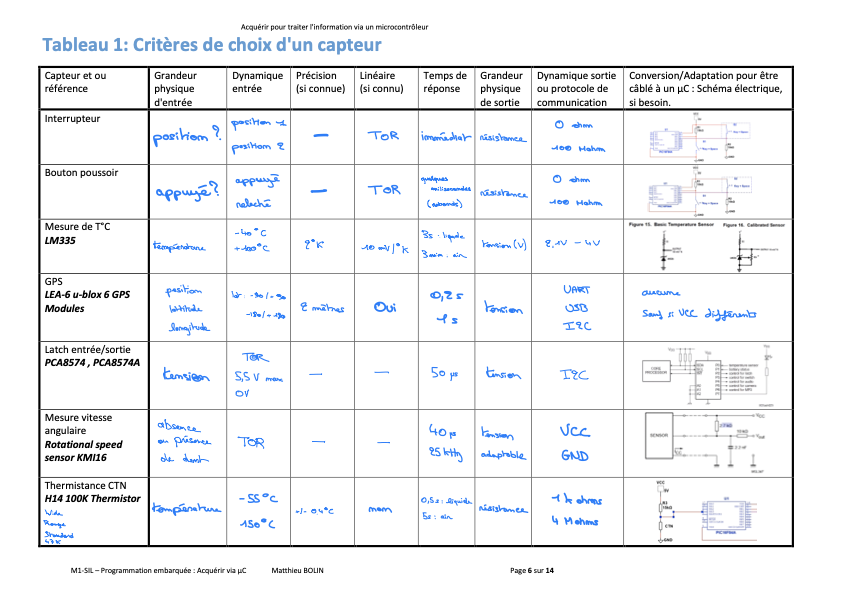 Acquérir pour traiter l'information via un microcontrôleur
Tableau 1: Critères de choix d'un capteur
Capteur et ou référence
Grandeur physique d'entrée
Dynamique entrée
Précision (si connue)
Linéaire (si connu)
Temps de réponse
Grandeur physique de sortie
Dynamique sortie ou protocole de communication
Conversion/Adaptation pour être câblé à un µC : Schéma électrique, si besoin.
Interrupteur
position ?
position 1
position 2
—
ToR
immédiat
résistance
0 ohm
100 Mohm
Bouton poussoir
appuyé ?
appuyé
relaché
—
ToR
quelques milisecondes
(rebonds)
résistance
0 ohm
100 Mohm
Mesure de T°C
LM335
température
-40°C
+100°C
2°K
10 mV/°K
3s : liquide
3min : air
tension (V)
2,1V - 4V
Figure 15. Basic Temperature Sensor
Figure 16. Calibrated Sensor
GPS
LEA-6 u-blox 6 GPS
Modules
position
latitude
longitude
-90/+90
-180/+180
2 mètres
Oui
0,2s
1s
tension
UART
USB
I2C
aucune
Sauf si VCC différents
Latch entrée/sortie
PCA8574 , PCA8574A
tension
ToR
5,5 V max
0V
—
—
50 µs
tension
I2C
CORE
PROCESSOR
Mesure vitesse
angulaire
Rotational speed
sensor KMI16
absence
ou présence
de dent
ToR
—
—
40 µs
25 kHz
tension
adaptable
VCC
GND
SENSOR
Thermistance CTN
H14 100K Thermistor
Wide
Range
Standard
47K
température
-55°C
150°C
+/- 0.4°C
non
0,5s : liquide
5s : air
résistance
1 k ohms
4 M ohms
VCC
5V
CTN
GND
M1-SIL – Programmation embarquée : Acquérir via µC
Matthieu BOLIN
Page 6 sur 14